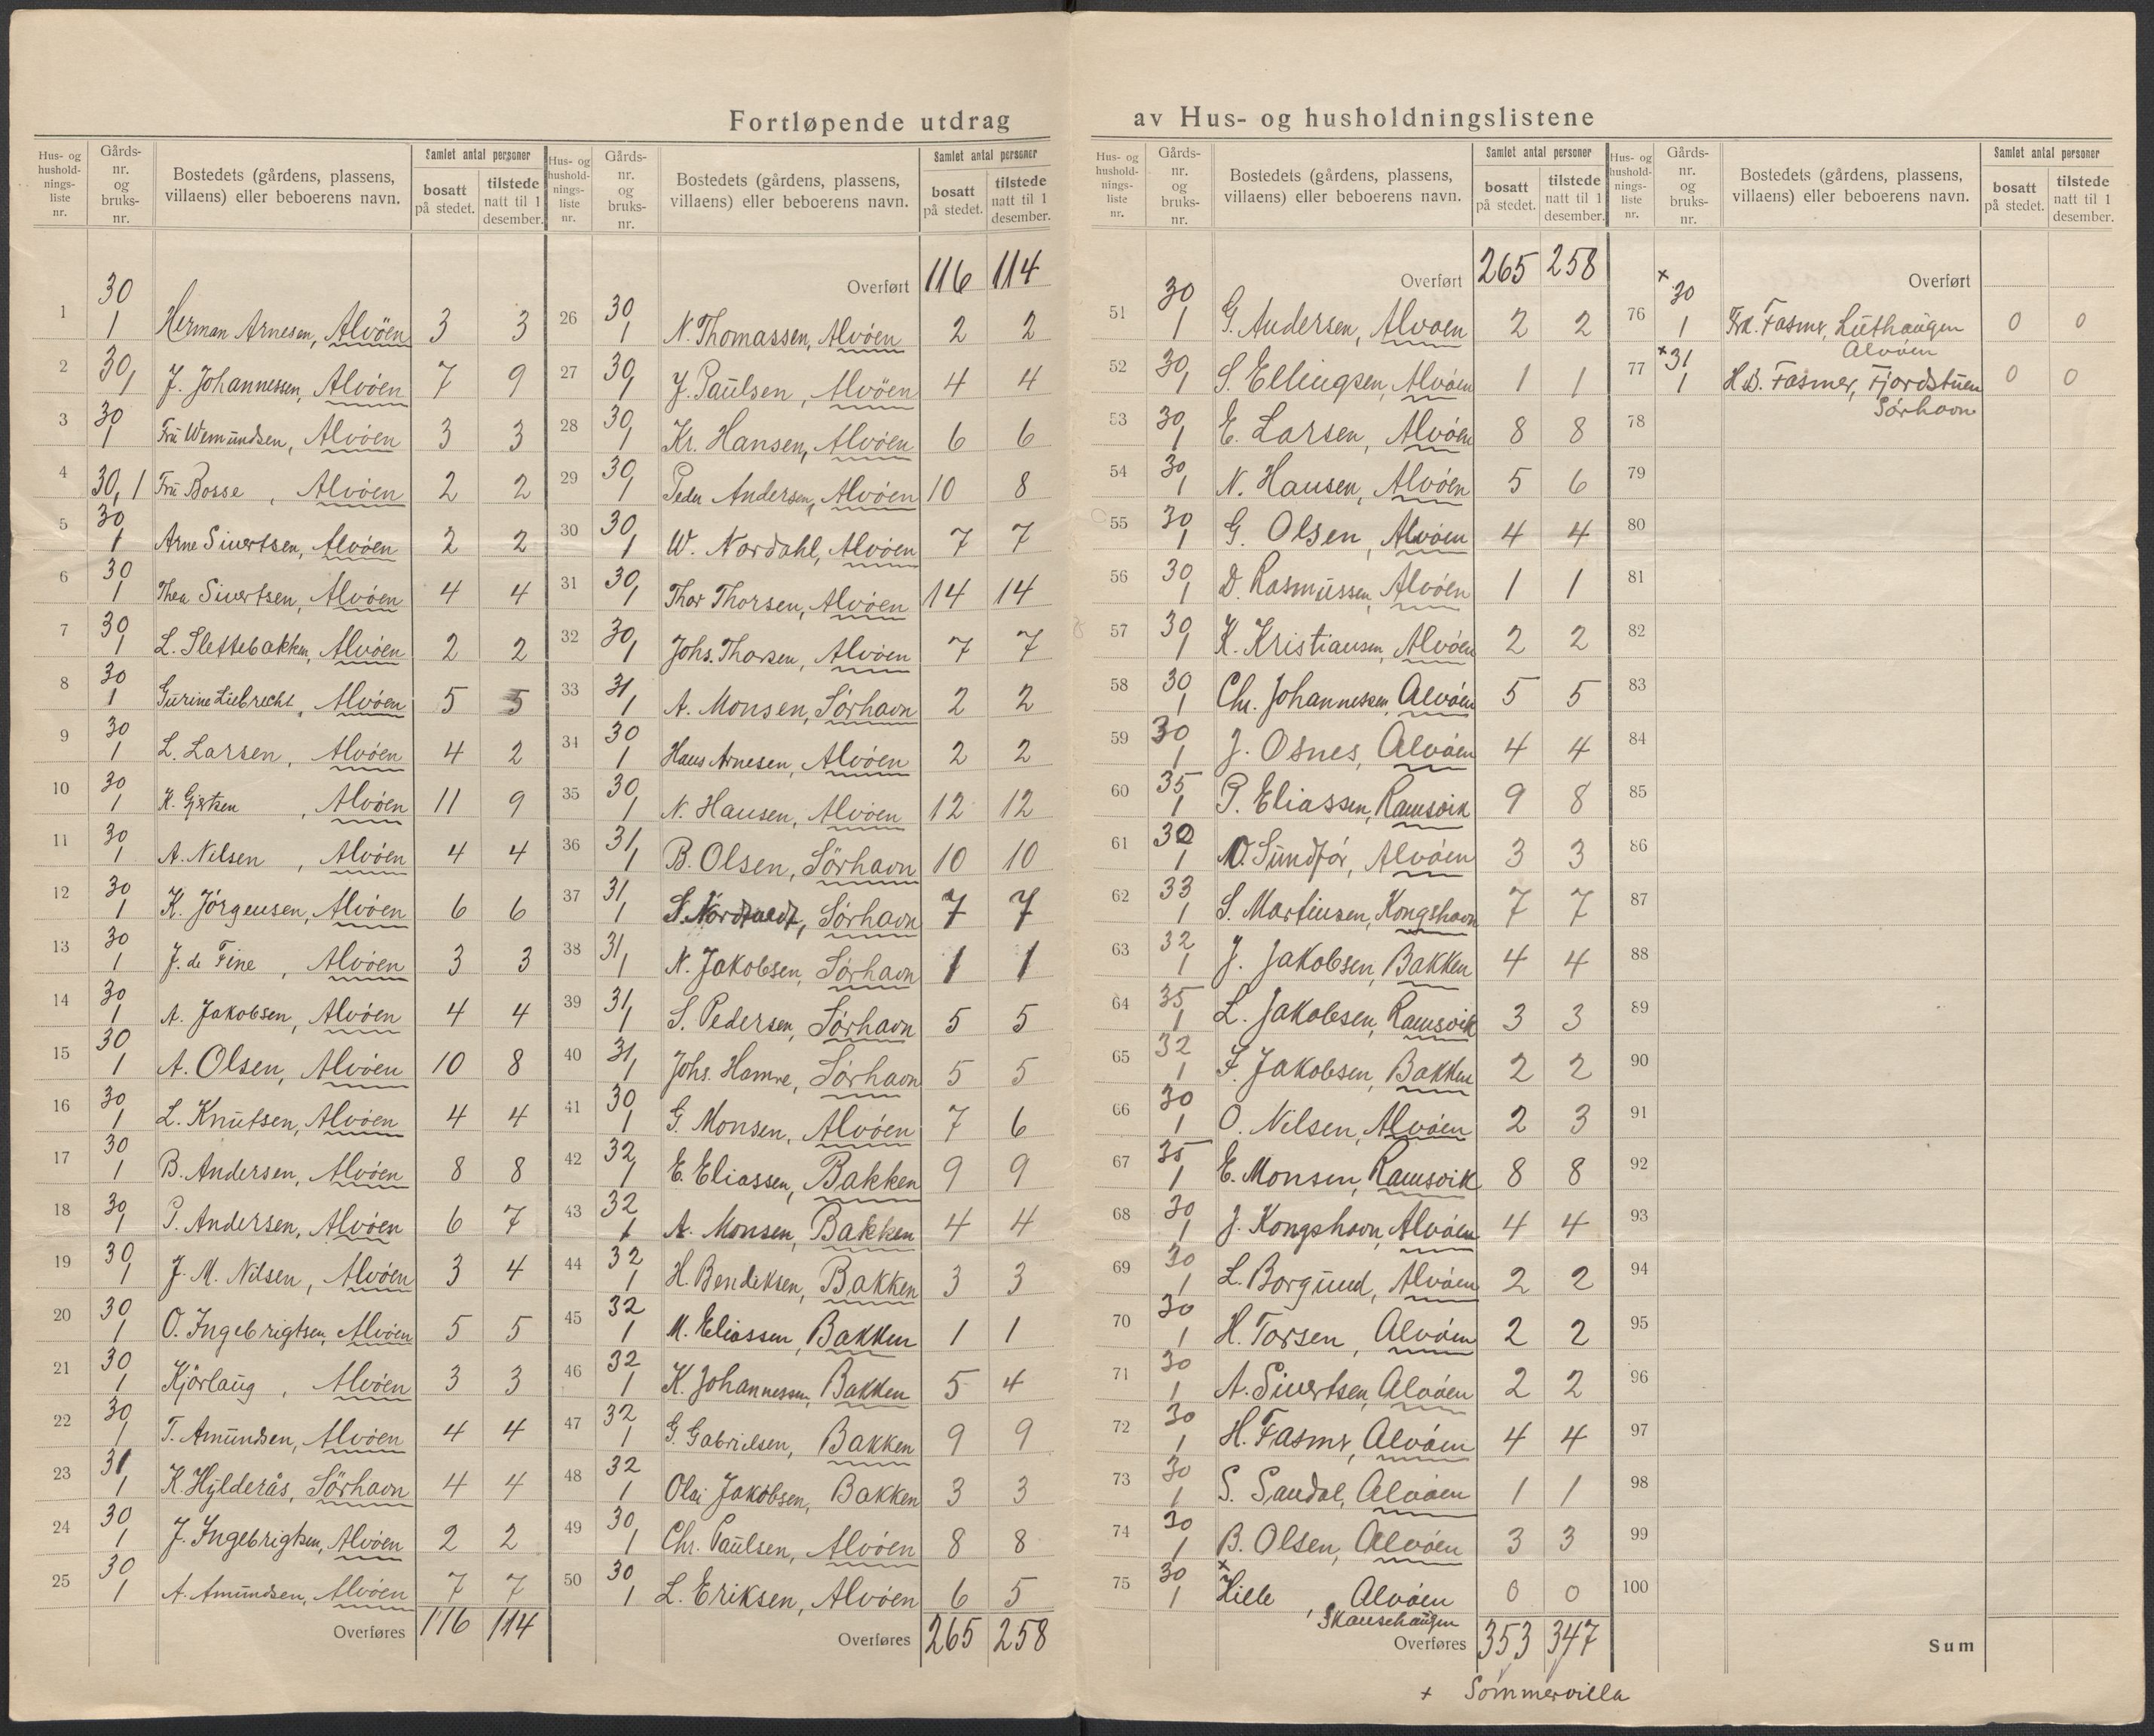 Fortløpende utdrag av Hus- og husholdningslistene
Hus- og hushold-nings-liste nr. | Gårds-nr. og bruks-nr. | Bostedets (gårdens, plassens, villaens) eller beboerens navn. | Samlet antal personer | bosatt på stedet. | tilstede natt til 1 desember.
1 30 1 Herman Arnesen, Alvöen 3 3
2 30, 1 J. Johannessen, Alvöen 7 9
3 30 1 Fru Wemundsen, Alvöen 3 3
4 30, 1 Fru Bosse, Alvöen 2 2
5 30, 1 Arne Sivertsen, Alvöen 2 2
6 30 1 Thea Sivertsen, Alvöen 4 4
7 30, 1 L. Slettebakken, Alvöen 2 2
8 30 1 Gurine Liebrecht, Alvöen 5 5
9 30 1 L. Larsen, Alvöen 4 2
10 30 1 K. Gjertsen, Alvöen 11 9
11 30 1 A. Nilsen, Alvöen 4 4
12 30 1 K. Jörgensen, Alvöen 6 6
13 30 1 J. de Fine, Alvöen 3 3
14 30 1 A. Jakobsen, Alvöen 4 4
15 30 1 A. Olsen, Alvöen 10 8
16 30 1 L. Knutsen, Alvöen 4 4
17 30 1 B. Andersen, Alvöen 8 8
18 30, 1 P. Andersen, Alvöen 6 7
19 30, 1 J. M. Nilsen, Alvöen 3 4
20 30 1 O. Ingebrigtsen, Alvöen 5 5
21 30 1 Kjörlaug, Alvöen 3 3
22 30, 1 T. Amundsen, Alvöen 4 4
23 31 1 K. Hylderås, Sörhavn 4 4
24 30 1 J. Ingebrigtsen, Alvöen 2 2
25 30 1 A. Amundsen, Alvöen 7 7
Overføres 116 114
Hus- og hushold-nings-liste nr. | Gårds-nr. og bruks-nr. | Bostedets (gårdens, plassens, villaens) eller beboerens navn. | Samlet antal personer | bosatt på stedet. | tilstede natt til 1 desember.
Overført 116 114
26 30 1 N. Thomassen, Alvöen 2 2
27 30, 1 J. Paulsen, Alvöen 4 4
28 30, 1 Kr. Hansen, Alvöen 6 6
29 30, 1 Peder Andersen, Alvöen 10 8
30 30, 1 W. Nordahl, Alvöen 7 7
31 30, 1 Thor Thorsen, Alvöen 14 14
32 30, 1 Johs. Thorsen, Alvöen 7 7
33 31, 1 A. Monsen, Sörhavn 2 2
34 30 1 Hans Arnesen, Alvöen 2 2
35 30, 1 N. Hansen, Alvöen 12 12
36 31, 1 B. Olsen, Sörhavn 10 10
37 31, 1 Sörhavn 7 7
38 31, 1 N. Jakobsen, Sörhavn 1 1
39 31, 1 S. Pedersen, Sörhavn 5 5
40 31, 1 Johs. Hamre, Sörhavn 5 5
41 30 1 G. Monsen, Alvöen 7 6
42 32, 1 E. Eliassen, Bakken 9 9
43 32 1 A. Monsen, Bakken 4 4
44 32 1 H. Bendiksen, Bakken 3 3
45 32 1 M. Eliassen, Bakken 1 1
46 32 1 K. Johannessen, Bakken 5 4
47 32 1 G. Gabrielsen, Bakken 9 9
48 32 1 Olai Jakobsen, Bakken 3 3
49 30 1 Chr. Paulsen, Alvöen 8 8
50 30 1 L. Eriksen, Alvöen 6 5
Overføres 265 258
Hus- og hushold-nings-liste nr. | Gårds-nr. og bruks-nr. | Bostedets (gårdens, plassens, villaens) eller beboerens navn. | Samlet antal personer | bosatt på stedet. | tilstede natt til 1 desember.
Overført 265 258
51 30 1 G. Andersen, Alvöen 2 2
52 30, 1 S. Ellingsen, Alvöen 1 1
53 30, 1 E. Larsen, Alvöen 8 8
54 30, 1 N. Hansen, Alvöen 5 6
55 30, 1 G. Olsen, Alvöen 4 4
56 30, 1 D. Rasmussen, Alvöen 1 1
57 30, 1 K. Kristiansen, Alvöen 2 2
58 30 1 Chr. Johannessen, Alvöen 5 5
59 30 1 J. Osnes, Alvöen 4 4
60 35 1 P. Eliassen, Ramsvik 9 8
61 30 1 O. Sundför, Alvöen 3 3
62 33 1 S. Martinsen, Kongshavn 7 7
63 32 1 J. Jakobsen, Bakken 4 4
64 35 1 L. Jakobsen, Ramsvik 3 3
65 32 1 F. Jakobsen, Bakken 2 2
66 30 1 O. Nilsen, Alvöen 2 3
67 35 1 E. Monsen, Ramsvik 8 8
68 30 1 J. Kongshavn, Alvöen 4 4
69 30 1 L. Borgund, Alvöen 2 2
70 30 1 H. Torsen, Alvöen 2 2
71 30 1 A. Sivertsen, Alvöen 2 2
72 30 1 H. Fasmer, Alvöen 4 4
73 30 1 S. Sandal, Alvöen 1 1
74 30 1 B. Olsen, Alvöen 3 3
75 30 1 + Hille, Alvöen 0 0
Skansehaugen
Overføres 353 347
+ Sommervilla
Hus- og hushold-nings-liste nr. | Gårds-nr. og bruks-nr. | Bostedets (gårdens, plassens, villaens) eller beboerens navn. | Samlet antal personer | bosatt på stedet. | tilstede natt til 1 desember.
Overført
76 + 30 1 Fasmer, Luthaugen 0 0
Alvöen
77 + 31 1 H. B. Fasmer, Fjordstuen 0 0
Sörhavn
78
79
80
81
82
83
84
85
86
87
88
89
90
91
92
93
94
95
96
97
98
99
100
Sum